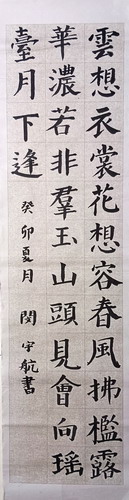 雲想衣裳花想容春風拂檻露
華濃若非羣玉山頭見會向瑶
臺月下逢
癸卯夏月 閔宇航書